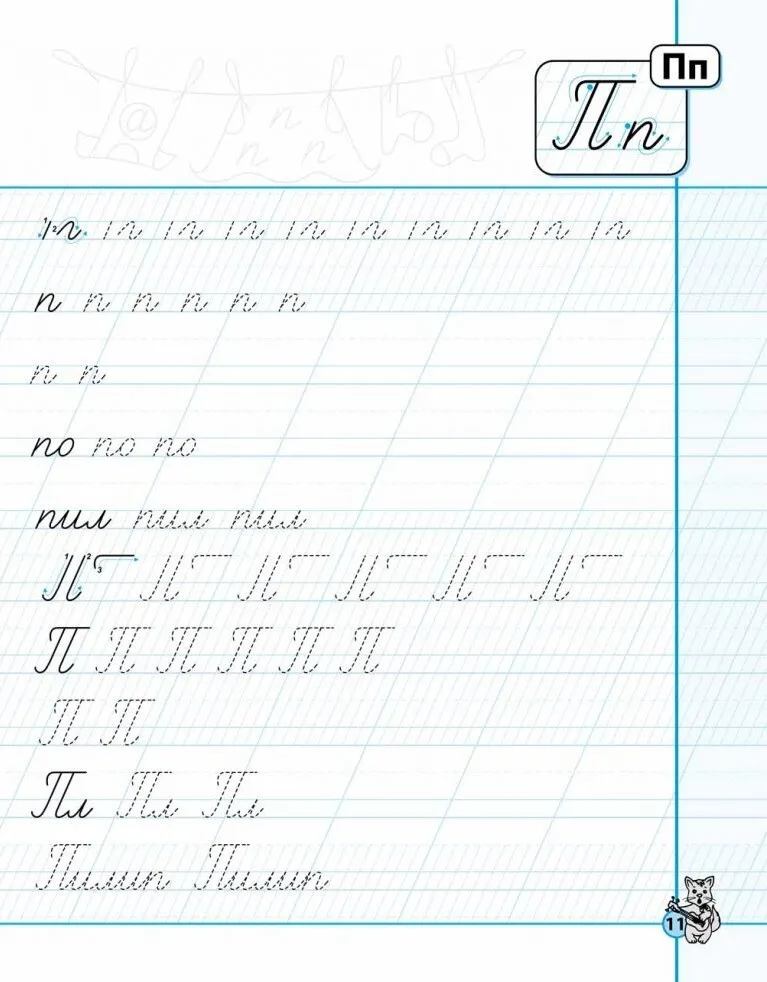 Пп
П п
п
п п п п п п
п п
по по по
пил пил пил
1 2 3
П П П П П П
П П
Пл Пл Пл
Пилип Пилип
11